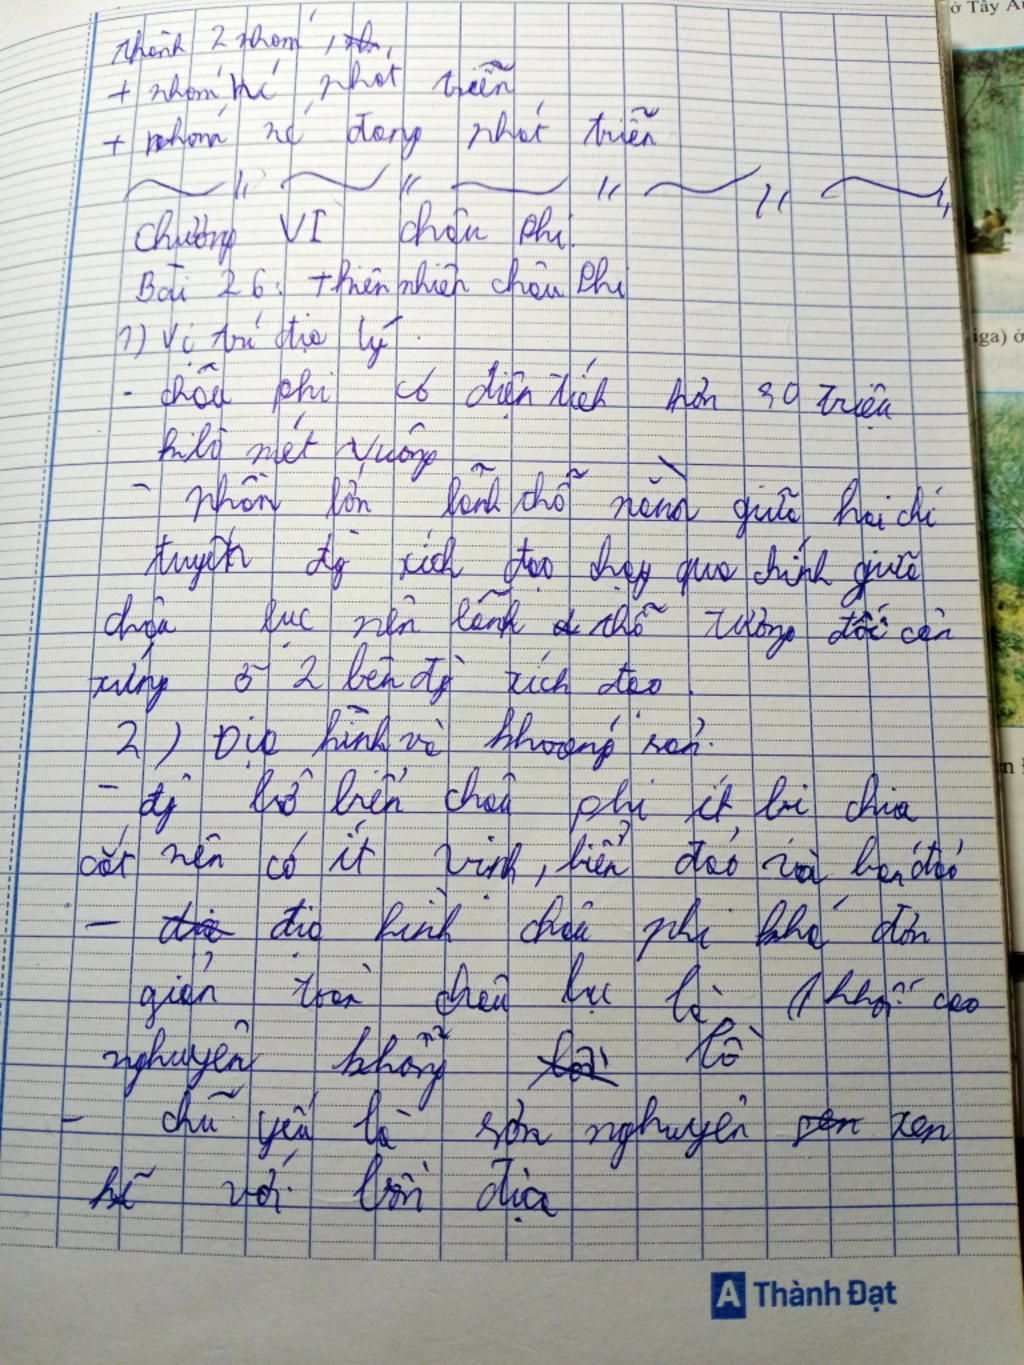 thành 2 nhóm,
+ nhóm phát triển
+ nhóm đang phát triển
Chương VI Châu Phi.
Bài 26: thiên nhiên châu Phi
1) Vị trí địa lý
- châu phi có diện tích hơn 30 triệu
kilô mét vuông
- phần lớn lãnh thổ nằm giữa hai chí
tuyến độ xích đạo chạy qua chính giữa
châu lục nên lãnh thổ tương đối cân
xứng ở 2 bên độ xích đạo.
2) Địa hình và khoáng sản.
- độ bờ biển châu phi ít bi chia
cắt nên có ít vịnh, biển đảo và bán đảo
- địa hình châu phi khá đơn
giản toàn châu lục là 1 khối cao
nghuyên khổng lồ
- chũ yếu là sơn nghuyên xen
kẽ với bồn địa
A Thành Đạt
ở Tây
iga) ở